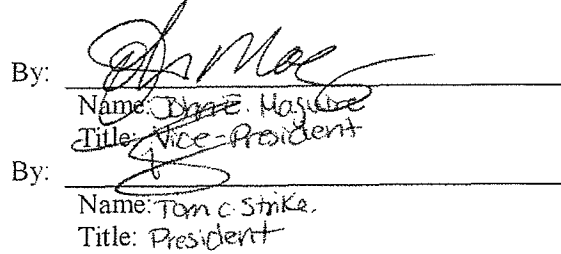 By:
Name: John E. Maguire
Title: Vice-President
By:
Name: Tom C. Strike.
Title: President